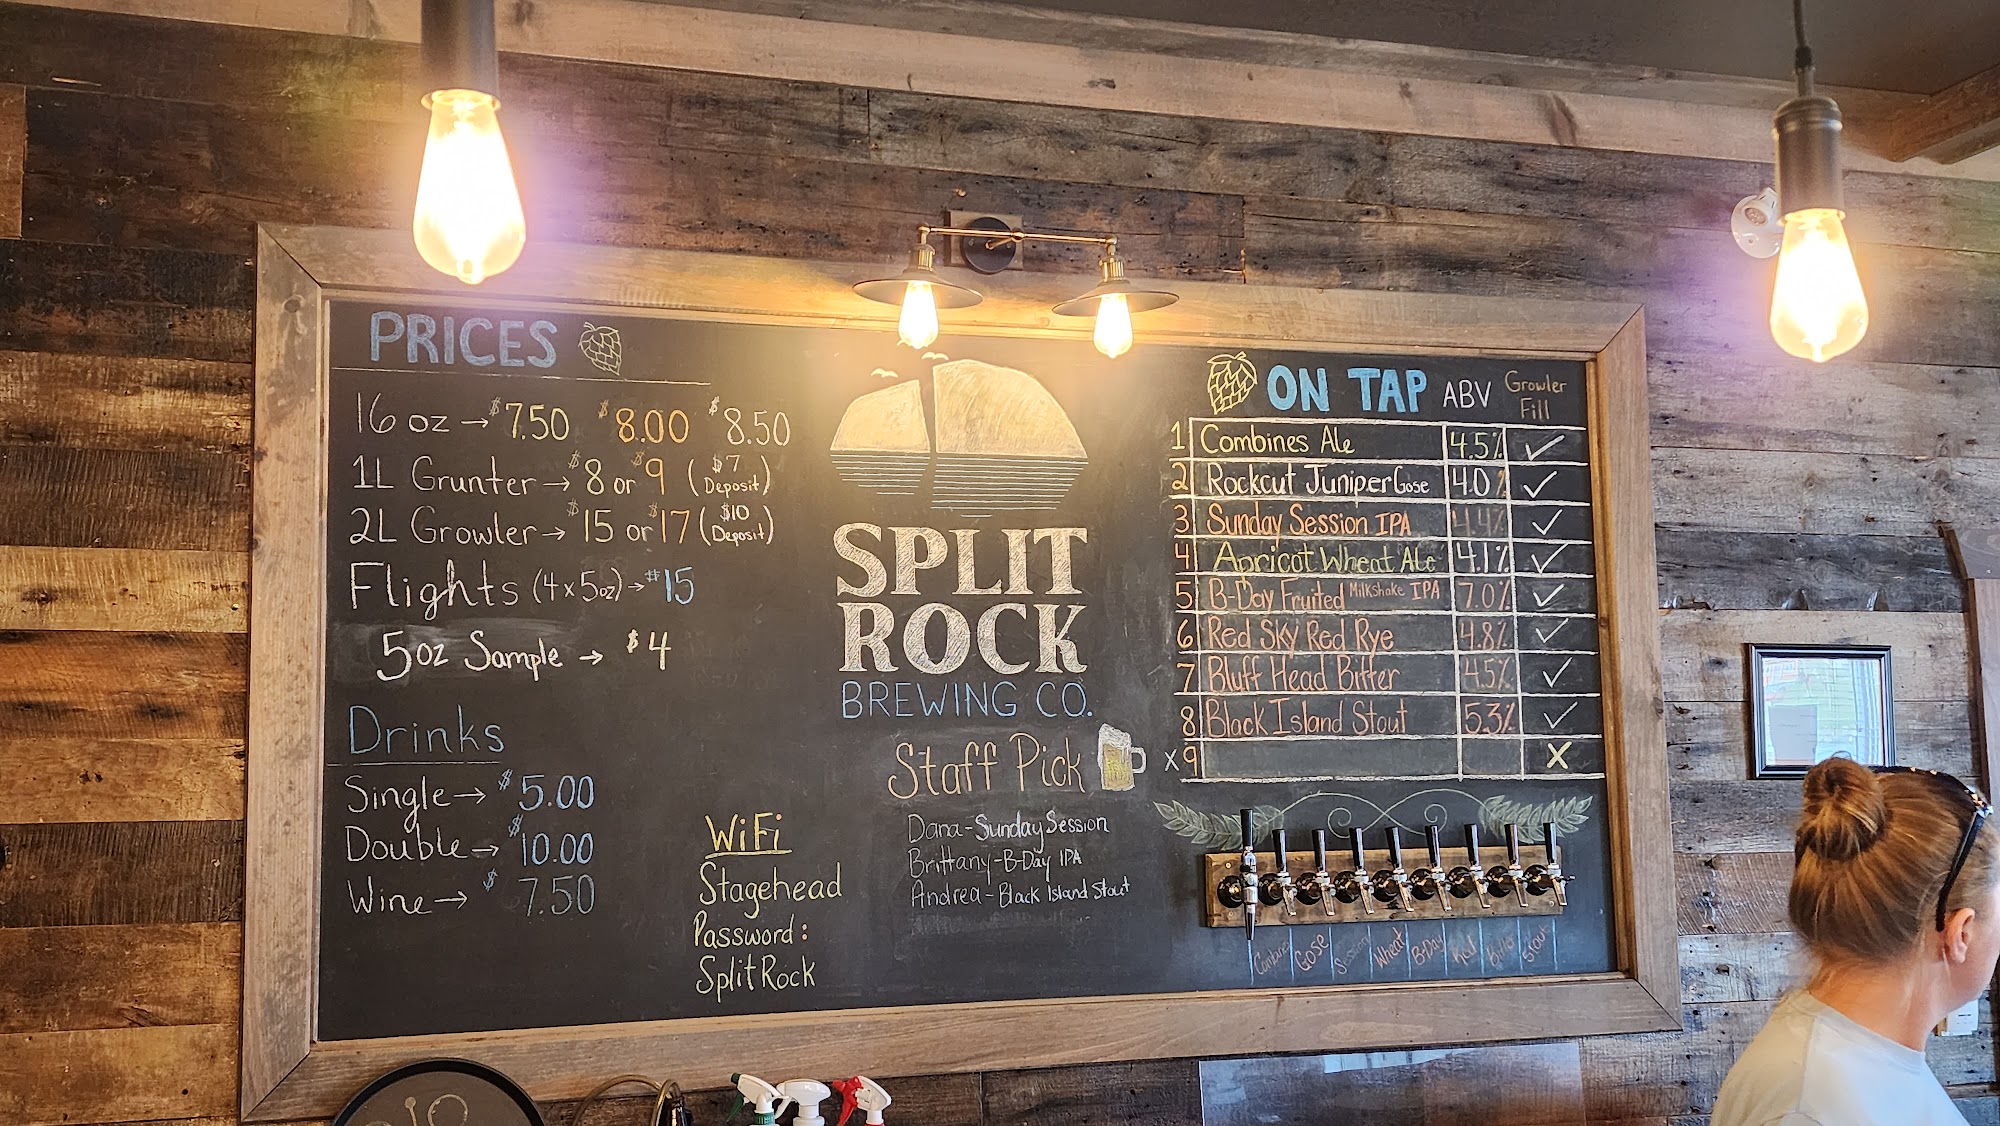 PRICES
16 oz → $7.50 $8.00 $8.50
1L Grunter → $8 or $9 ($7 Deposit)
2L Growler → $15 or $17 ($10 Deposit)
Flights (4 x 5oz) → $15
5oz Sample → $4
Drinks
Single → $5.00
Double → $10.00
Wine → $7.50
WiFi
Stagehead
Password:
SplitRock
SPLIT
ROCK
BREWING CO.
Staff Pick
Dana - Sunday Session
Brittany - B-Day IPA
Andrea - Black Island Stout
ON TAP ABV Growler Fill
1 Combines Ale 4.5% ✓
2 Rockcut Juniper Gose 4.0% ✓
3 Sunday Session IPA 4.4% ✓
4 Apricot Wheat Ale 4.1% ✓
5 B-Day Fruited Milkshake IPA 7.0% ✓
6 Red Sky Red Rye 4.8% ✓
7 Bluff Head Bitter 4.5% ✓
8 Black Island Stout 5.3% ✓
x 9 X
Combines Gose Session Wheat B-Day Red Bitter Stout